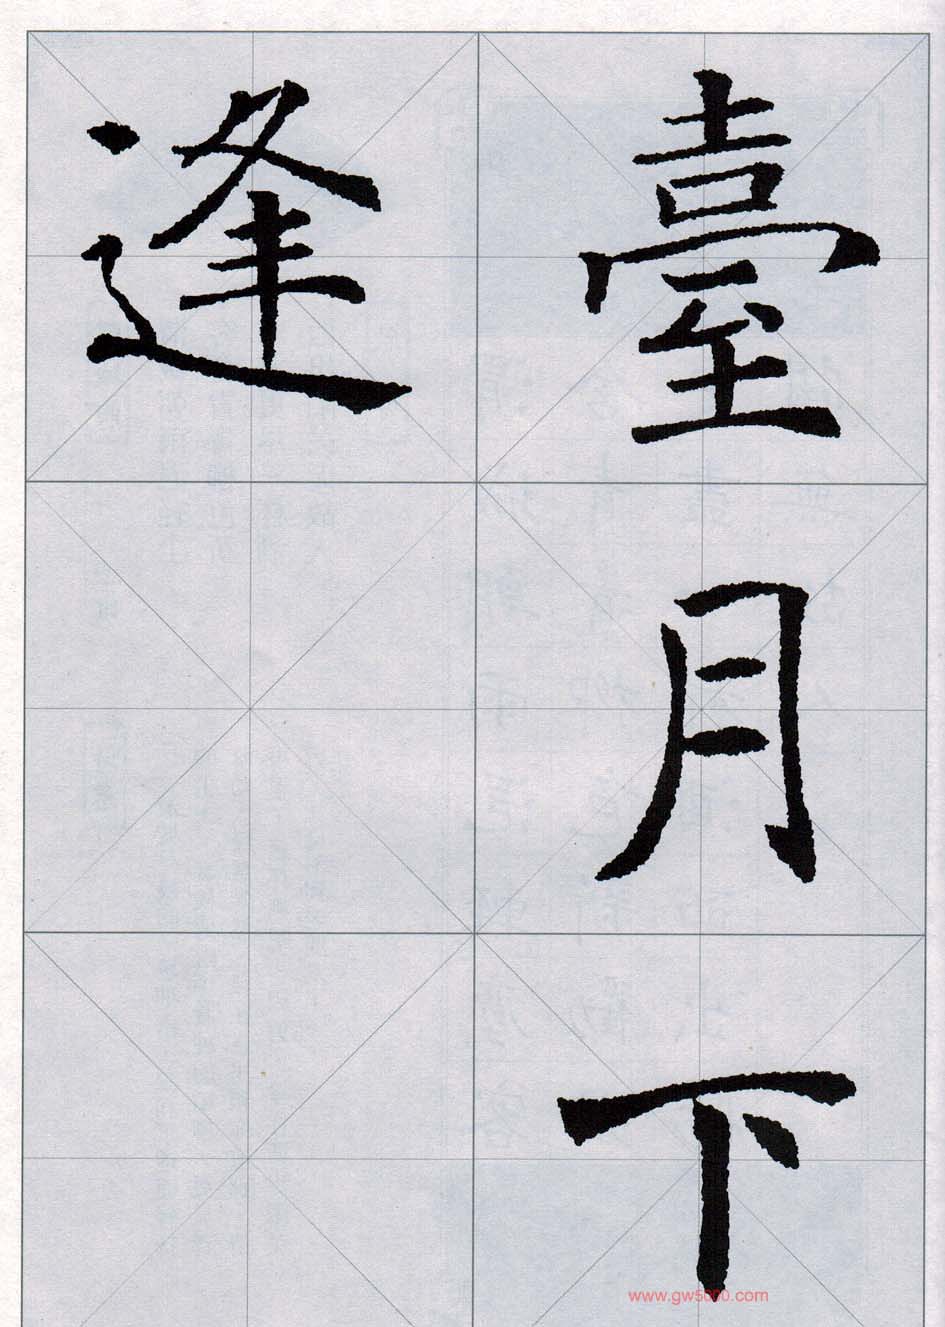 臺月下
逢
www.gw5000.com